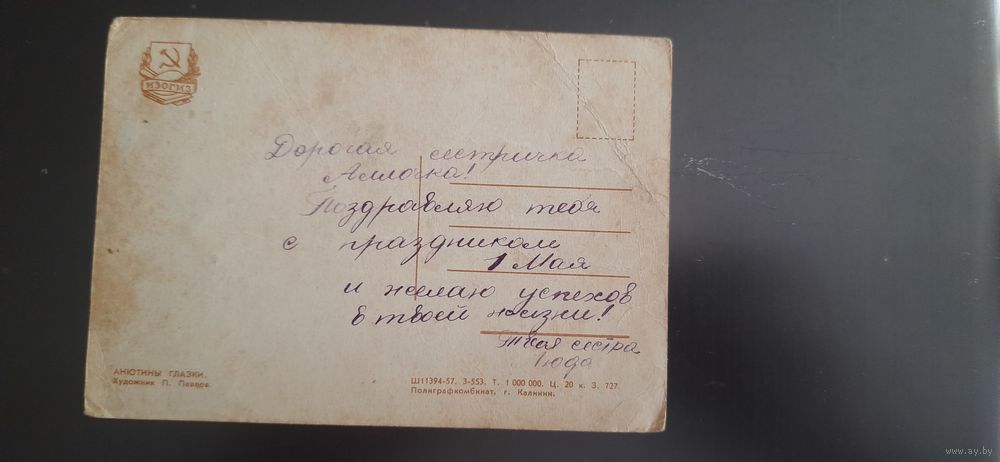 ИЗОГИЗ
Дорогая сестричка
Аллочка!
Поздравляю тебя
с праздником
1 Мая
и желаю успехов
в твоей жизни!
Твоя сестра
Люда
АНЮТИНЫ ГЛАЗКИ.
Художник П.
Ш11394-57. З-553. Т. 1 000 000. Ц. 20 к. З. 727.
Полиграфкомбинат, г. Калинин.
www.ay.by